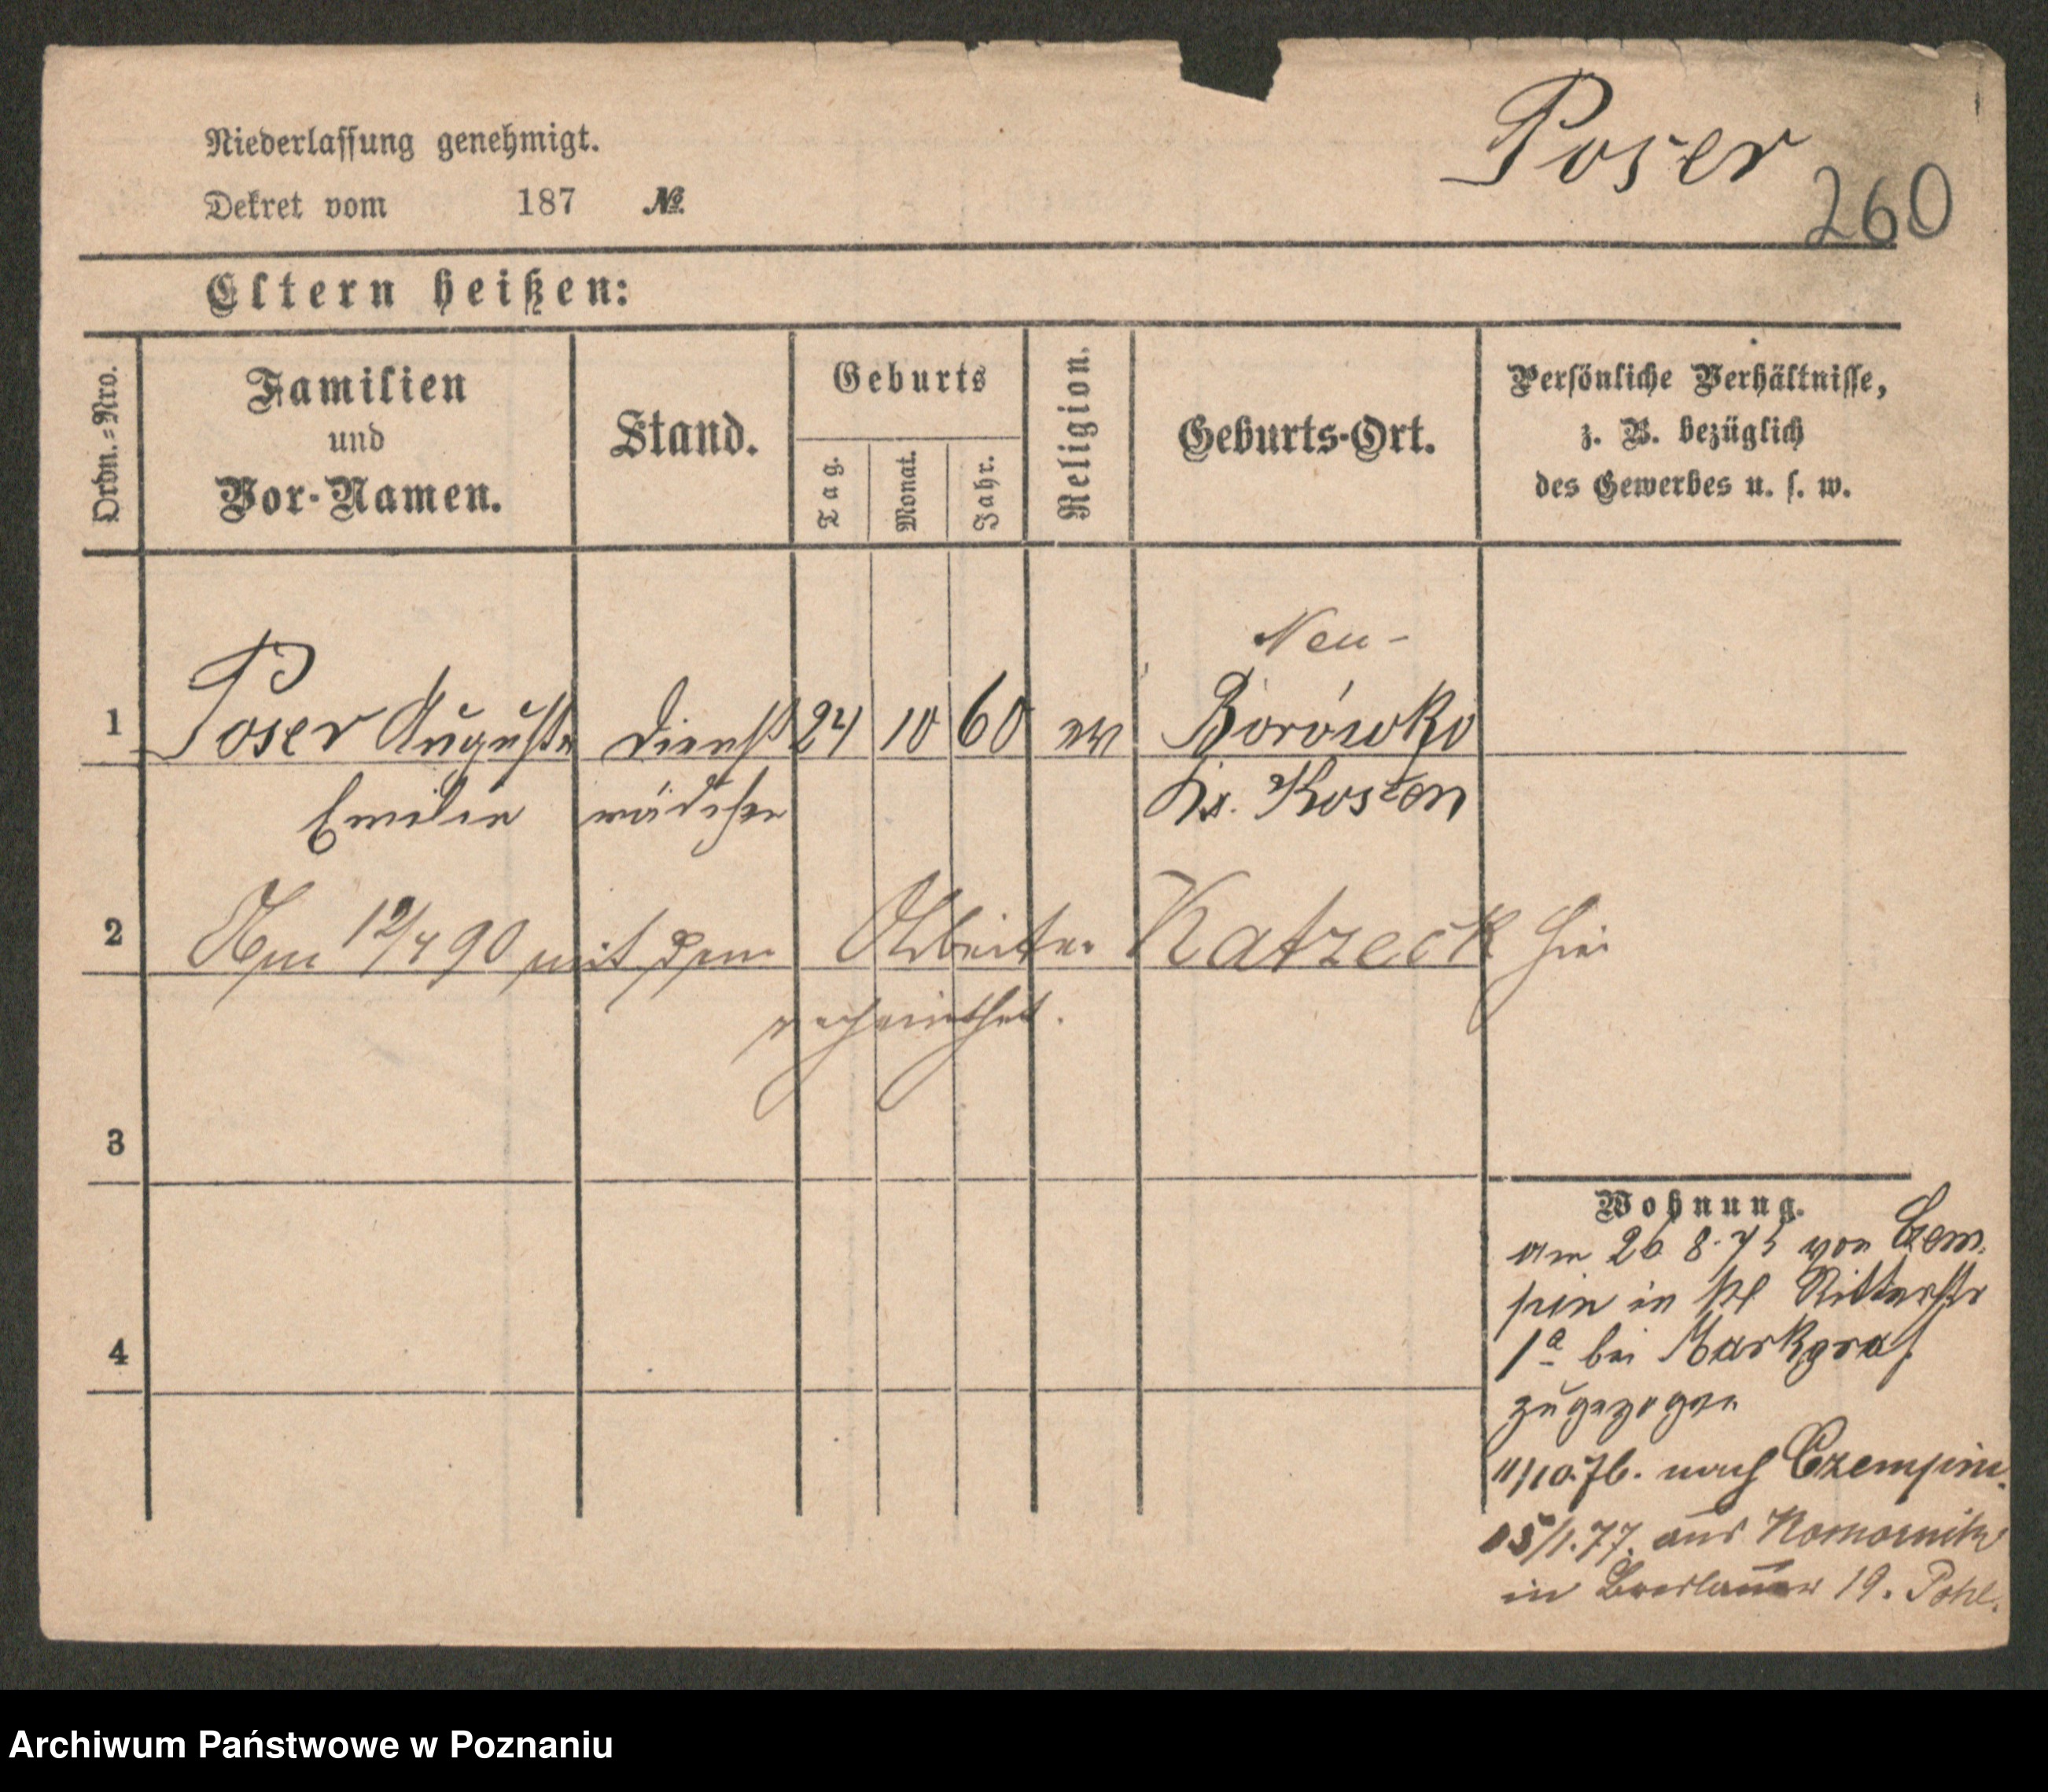 Niederlassung genehmigt.
Poser
260
Dekret vom 187 №
Eltern heißen:
Ordn.-Nro.
Familien
und
Vor-Namen.
Stand.
Geburts
Tag.
Monat.
Jahr.
Religion.
Geburts-Ort.
Persönliche Verhältnisse,
z. B. bezüglich
des Gewerbes u. s. w.
Neu-
1 Poser Auguste Dienst 24 10 60 ev Borówko
Emilie mädchen Kr. Kosten
2 Am 12/4 90 mit dem Arbeiter Katzeck hier
verheirathet.
3
Wohnung.
am 26 8. 75 von Czem-
pin in Kl Ritterstr
4
1a bei Markgraf
zugezogen
11/10.76. nach Czempin.
15/1.77. aus Komornik
in Breslauer 19. Pohl.
Archiwum Państwowe w Poznaniu